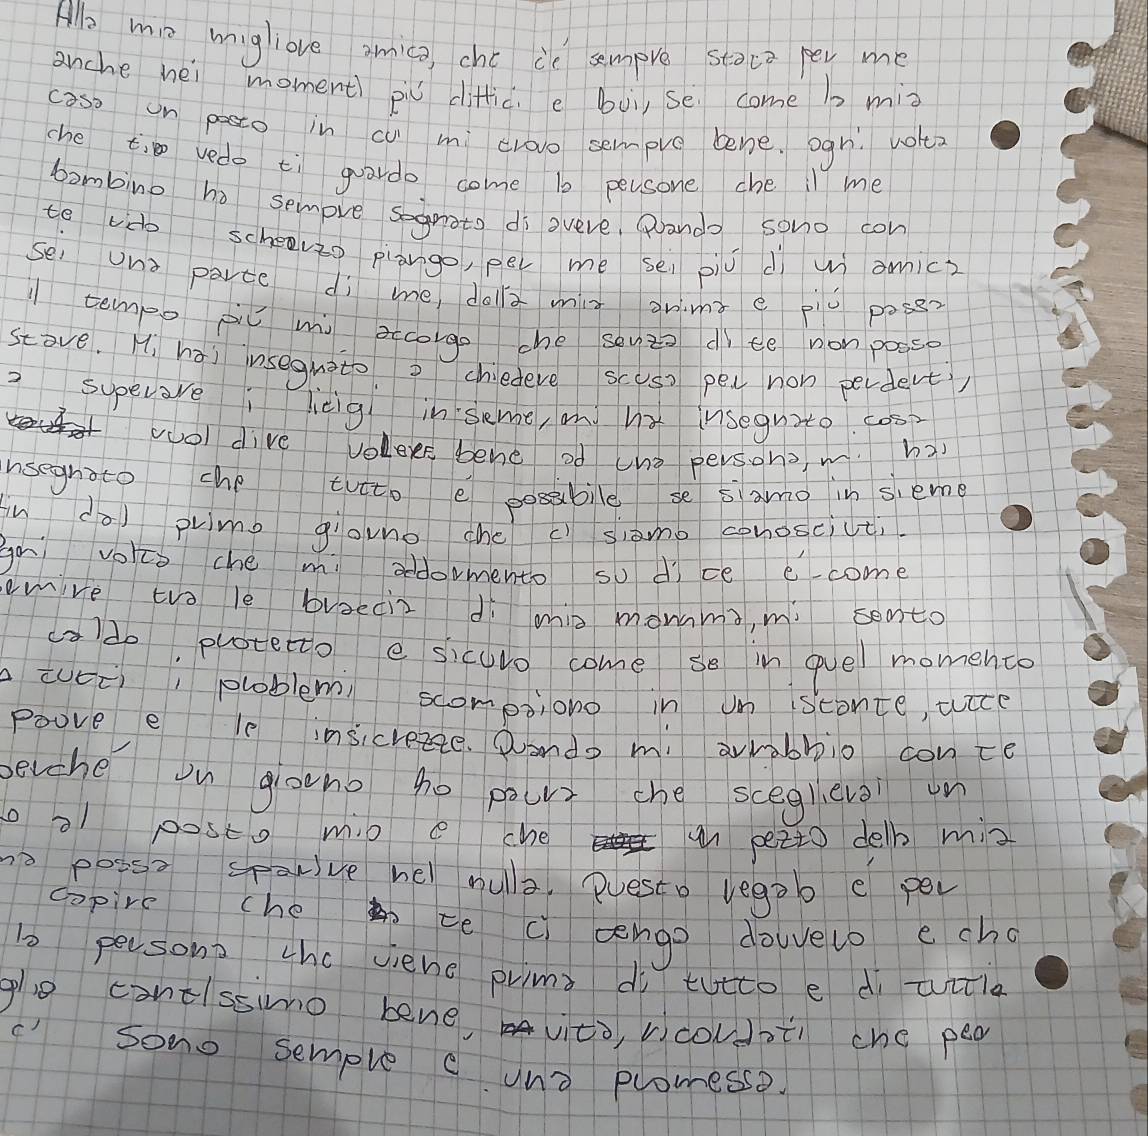 Alla mia migliore amica, che c'è sempre stata per me
anche nei momenti più difficili e bui, sei come la mia
casa un posto in cui mi trovo sempre bene. ogni volta
che ti vedo ti guardo come la persone che il me
bambino ha sempre sognato di avere. Quando sono con
te rido scherzo piango, per me sei più di un amica
sei una parte di me, dalla mia anima e più passa
il tempo più mi accorgo che senza di te non posso
stare. Mi hai insegnato a chiedere scusa per non perderti,
a superare i litigi insieme, mi ha insegnato cosa
vuol dire volere bene ad una persona, mi hai
insegnato che tutto è possibile se siamo in sieme
fin dal primo giorno che ci siamo conosciuti.
Ogni volta che mi addormento su di te è come
ormire tra le braccia di mia mamma, mi sento
caldo, protetto e sicuro come se in quel momento
tutti i problemi scompaiono in un istante, tutte
paure e le insicrezze. Quando mi arrabbio con te
perché un giorno ho paura che sceglierai un
o al posto mio e che un pezzo della mia
na possa sparire nel nulla. Questo regalo è per
capire che a te ci tengo davvero e che
la persona che viene prima di tutto e di tutti
glio tantissimo bene, vita, ricordati che per
ci sono sempre è una promessa.